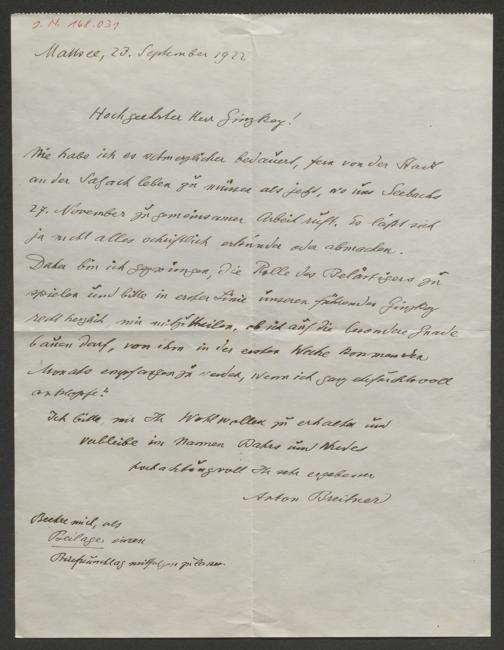 J. N. 168.031
Mattsee, 23. September 1922
Hochgeehrter Herr Ginzkey!
Nie habe ich es schmerzlicher bedauert, fern von der Stadt
an der Salzach leben zu müssen als jetzt, wo uns Seebachs
27. November zu gemeinsamer Arbeit ruft. Es läßt sich
ja nicht alles schriftlich erkunden oder abmachen.
Daher bin ich gezwungen, die Rolle des Belästigers zu
spielen und bitte in erster Linie unseren führenden Ginzkey
recht herzlich, mir mitzutheilen, ob ich auf die besondere Gnade
bauen darf, von ihm in der ersten Woche kommenden
Monats empfangen zu werden, wenn ich ganz ehrfurchtsvoll
anklopfe?
Ich bitte, mir Ihr Wohlwollen zu erhalten und
verbleibe im Namen Bahrs und
hochachtungsvoll Ihr sehr ergebener
Anton Breitner
Beehre mich, als
Beilage einen
Briefumschlag mitfolgen zu lassen.